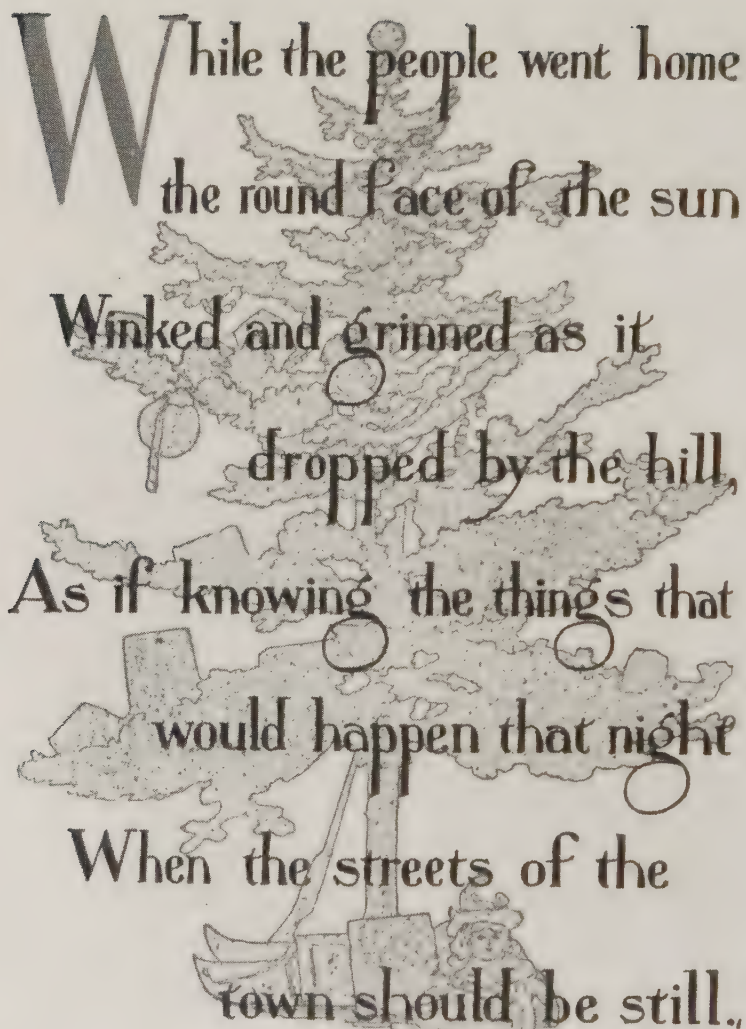 While the people went home
the round face of the sun
Winked and grinned as it
dropped by the hill,
As if knowing the things that
would happen that night
When the streets of the
town should be still.